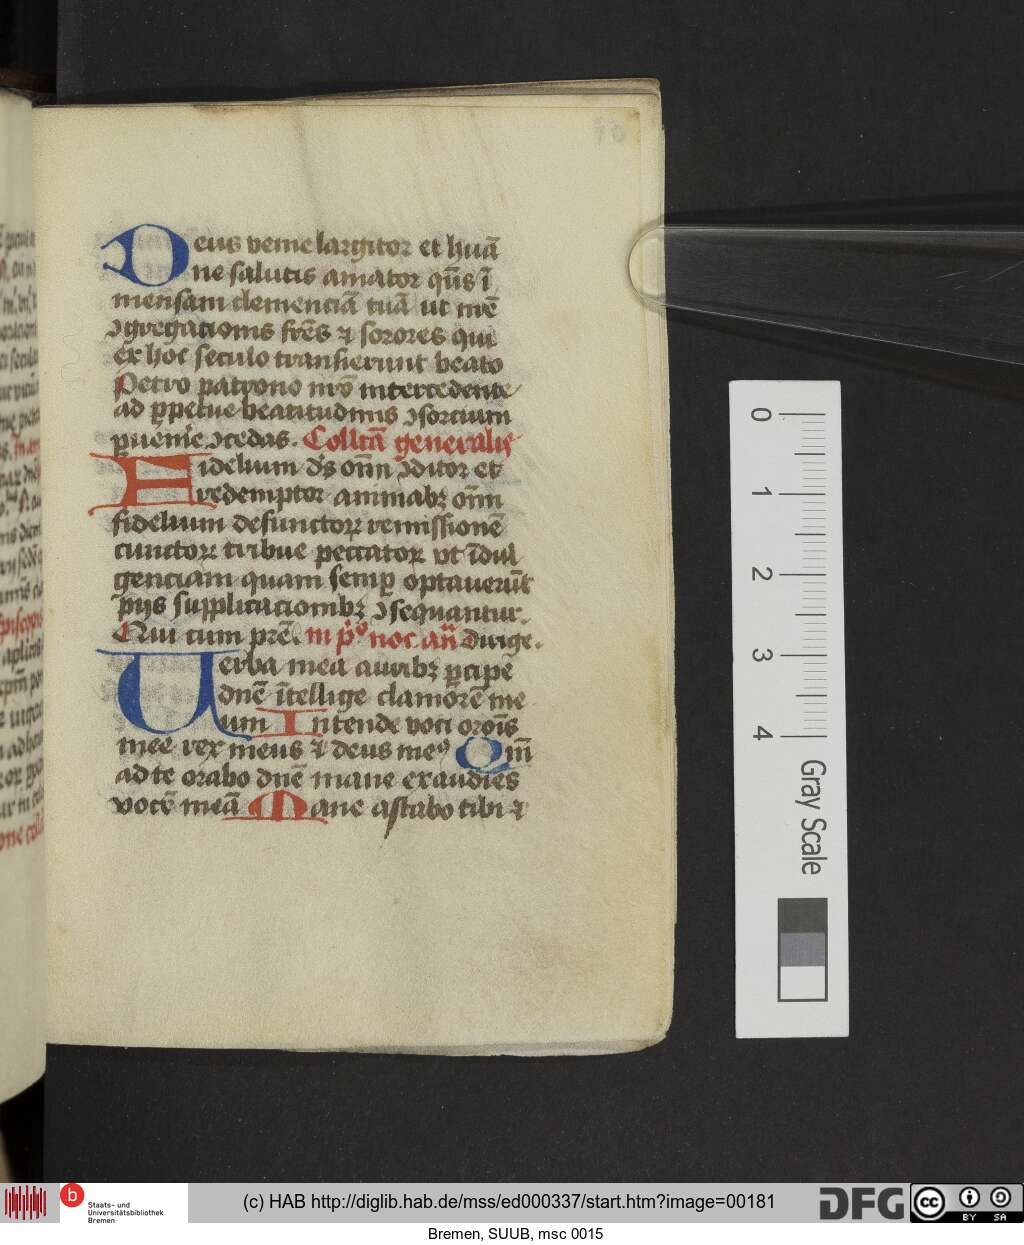 Deus venie largitor et huā
ne salutis amator qūs ī
mensam clemenciā tuā ut nrē
ꝯgregacionis frēs ⁊ sorores qui
ex hoc seculo transierunt beato
Petro patrono nrō intercedente
ad ꝑpetue beatitudinis ꝯsorcium
ꝑuenire ꝯcedas. Collctā generalis
Fidelium ds̄ om̄ ꝯditor et
redemptor animabꝫ om̄
fidelium defunctoꝝ remissionē
cunctoꝝ tribue peccatoꝝ vt īdul
genciam quam semꝑ optauerūt
pijs supplicacionibꝫ ꝯsequantur.
Qui cum prē. in pº noc an̄ Dirige.
Uerba mea auribꝫ ꝑcipe
dnē ītellige clamorē me
um Intende voci orōis
mee rex meus ⁊ deus meꝰ Qm̄
ad te orabo dnē mane exaudies
vocē meā Mane astabo tibi ⁊
0
1
2
3
4
Gray Scale
b Staats- und
Universitätsbibliothek
Bremen
(c) HAB http://diglib.hab.de/mss/ed000337/start.htm?image=00181
DFG
cc BY SA
Bremen, SUUB, msc 0015